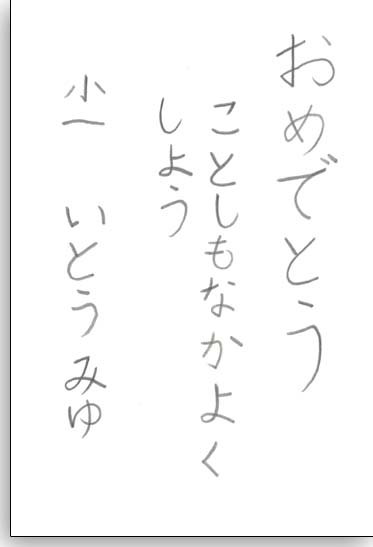 おめでとう
ことしもなかよく
しよう
小一 いとうみゆ